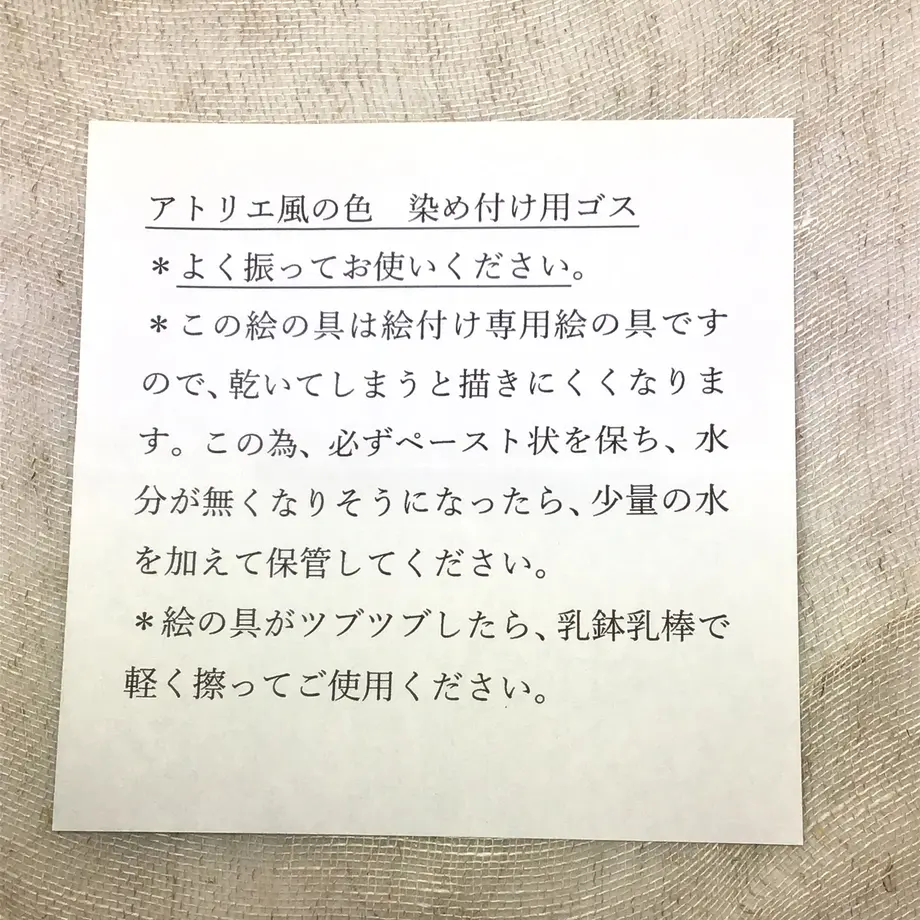 アトリエ風の色　染め付け用ゴス
＊よく振ってお使いください。
＊この絵の具は絵付け専用絵の具です
ので、乾いてしまうと描きにくくなりま
す。この為、必ずペースト状を保ち、水
分が無くなりそうになったら、少量の水
を加えて保管してください。
＊絵の具がツブツブしたら、乳鉢乳棒で
軽く擦ってご使用ください。